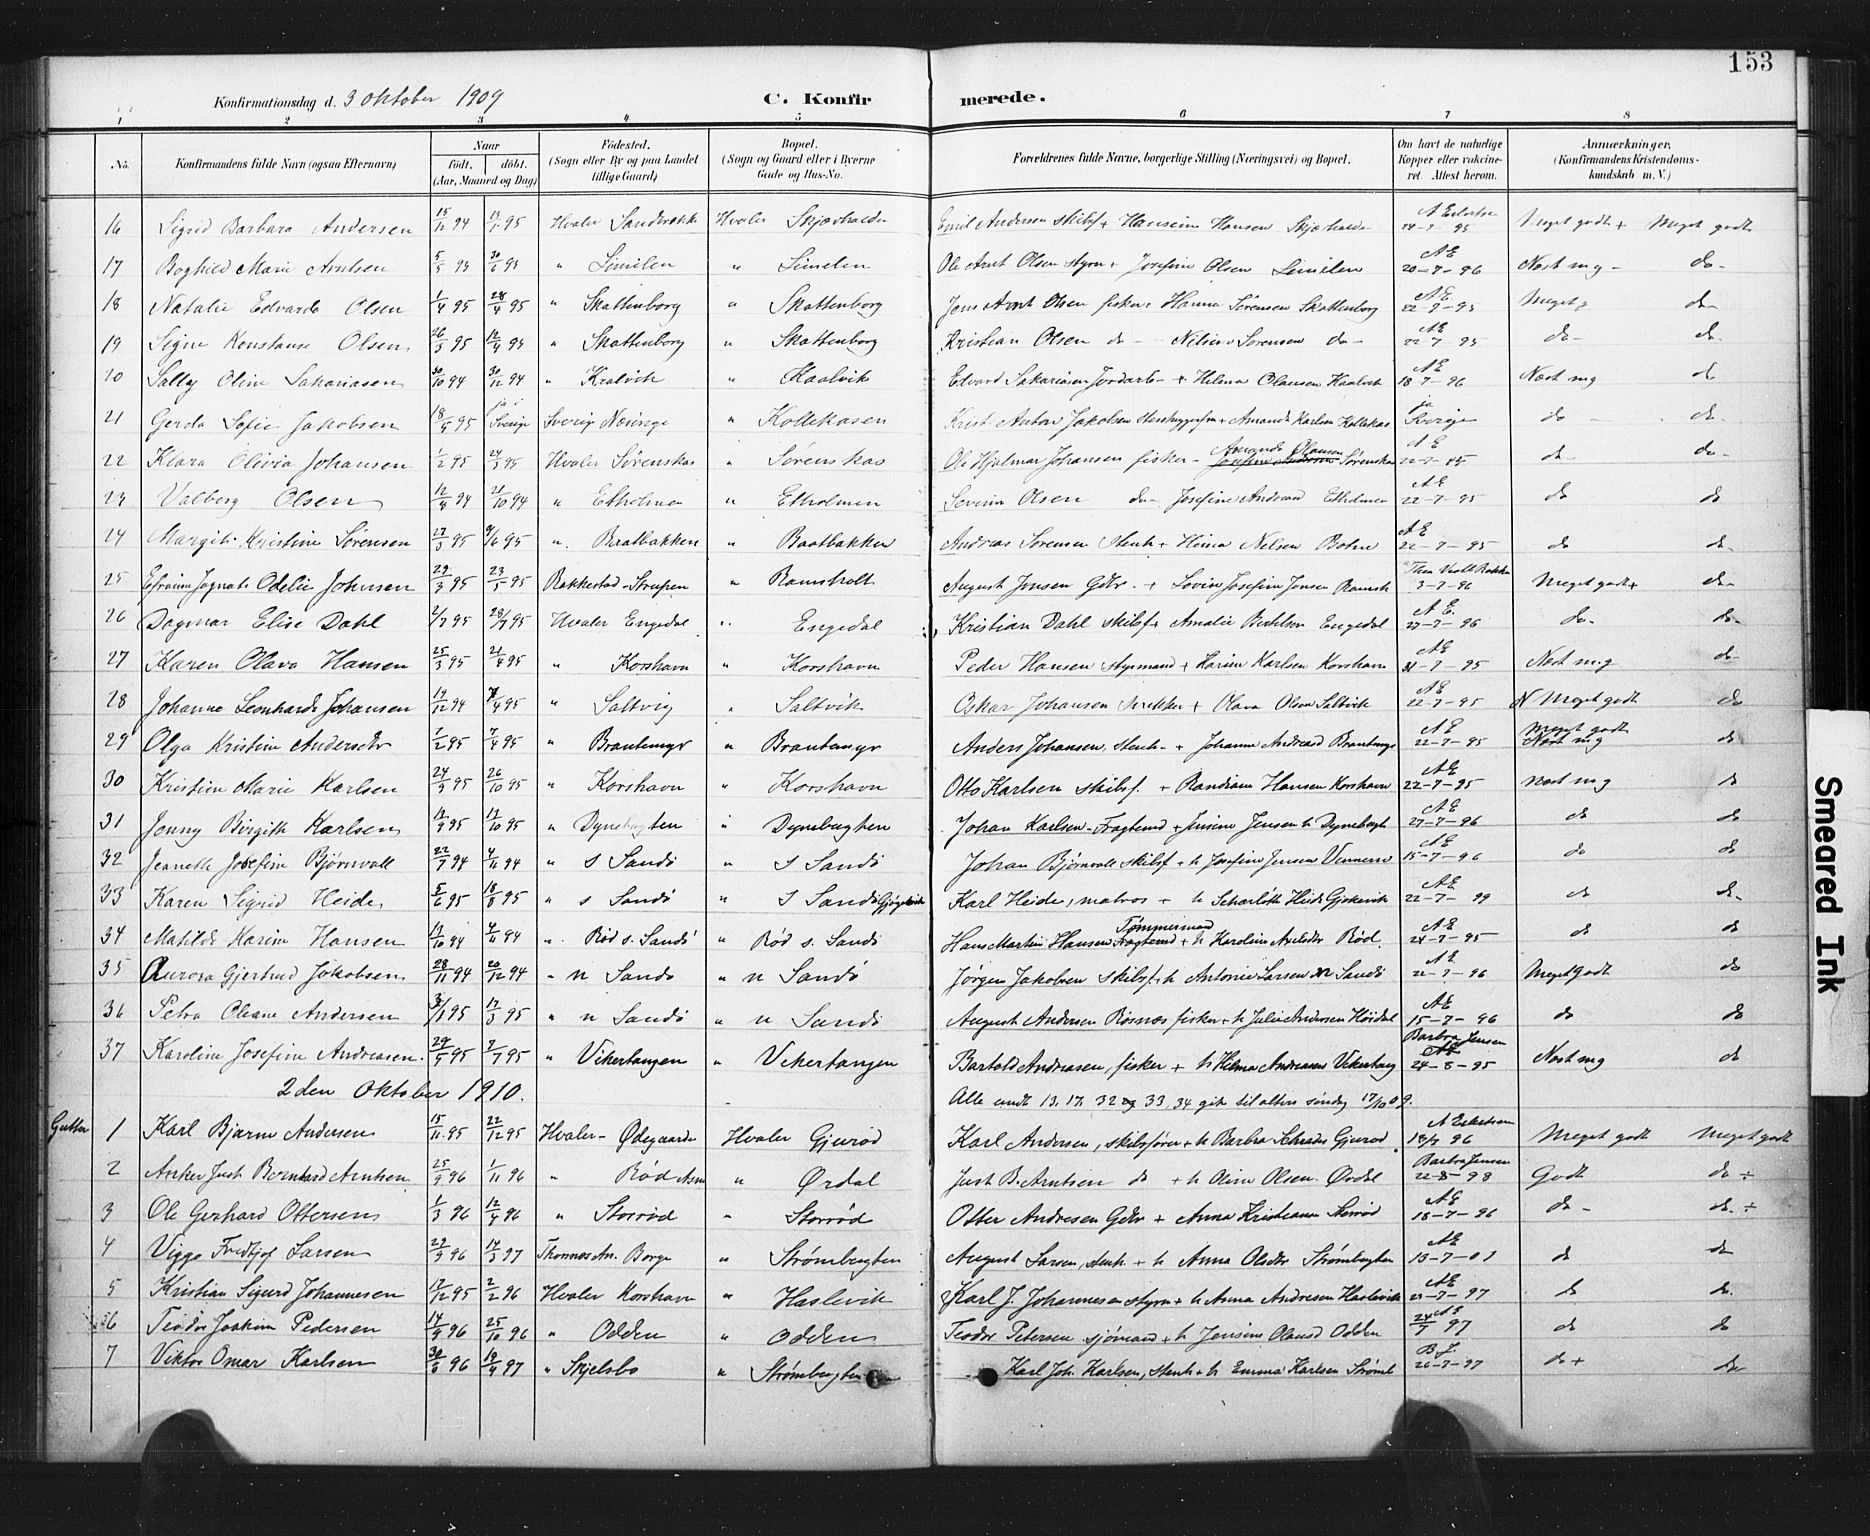 153
Konfirmationsdag d. 3 oktober 1909 C. Konfir merede.
1 2 3 4 5 6 7 8
No. Konfirmandens fulde Navn (ogsaa Efternavn) Naar født. døbt. (Aar, Maaned og Dag) Fødested. (Sogn eller By og paa Landet tillige Gaard) Bopæl. (Sogn og Gaard eller i Byerne Gade og Hus-No. Forældrenes fulde Navne, borgerlige Stilling (Næringsvei) og Bopæl. Om havt de naturlige Kopper eller vakcineret. Attest herom. Anmærkninger, (Konfirmandens Kristendomskundskab m. V.)
16 Sigrid Barbara Andersen 15/12 94 Hvaler Hvaler Skjærhalden Emil Andersen skibsf + Hansine Hansen Meget godt + Meget godt
17 Marie Arntsen " " Ole Arnt Olsen styrm + Josefine Olsen 20-7-96 Næst mg - do-
18 Natalie Edvarda Olsen 1/4 95 28/4 95 " Skattenborg " Skattenborg Jens Arnt Olsen fisker, Hanna Sørensen Skattenborg AE 22-7-95 Meget g do
19 Signe Konstanse Olsen 26/3 95 " Skattenborg " Skattenborg Kristian Olsen do - Sørensen do - AE 22-7-95 do- do
20 Sally Oline Sakariasen 30/10 94 30/12 94 " " Edvard Sakariasen Jordarb- + Helma Olausen AE 18-7-96 Næst mg do
21 Gerda Sofie Jakobsen 18/5 95 ja i Sverige Sverig " Kollekasen Krist. Anton Jakobsen + Amanda Karlsen ja Sverige do - do-
22 Klara Olivia Johansen 1/2 95 24/3 95 Hvaler Sørenskas " Sørenskas Ole Hjalmar Johansen fisker - Amanda Olausen Sørenskas AE do- do-
23 Valborg Olsen 12/8 94 21/10 94 " Etholmen " Etholmen Severin Olsen do- Josefine Etholmen AE 22-7-95 do do
24 Margit Kristine Sørensen 27/3 95 9/6 95 " Baatbakken " Baatbakken Andreas Sørensen Stenh + Nilsen AE 22-7-95 do do-
25 Odelie Johnsen 29/3 95 23/5 95 Rakkestad - " Ramsholt August Jonsen Gdbr. + Lovise Josefine Jonsen 3-7-96 Meget godt + do-
26 Dagmar Elise Dahl 2/7 95 28/7 95 Hvaler Engedal " Engedal Kristian Dahl skibsf + Amalie Engedal AE. 27-7-96 do- do-
27 Karen Olava Hansen 25/3 95 21/4 95 " Korshavn " Korshavn Peder Hansen styrmand + Karine Karlsen Korshavn AE 31-7-95 Næst mg do-
28 Johanne Leonharda Johansen 19/12 94 7/4 95 " Saltvig " Saltvik Oskar Johansen + Olava Olsen Saltvik AE 22-7-95 Meget godt do
29 Olga Kristine Andersdtr 1/2 95 7/4 95 " Brantemyr " Brantemyr Anders Johansen, stenh- + Johanne AE 22-7-95 Meget godt Næst mg do
30 Kristine Marie Karlsen 24/9 95 26/10 95 " Korshavn " Korshavn Otto Karlsen skibsf. + Hansen Korshavn AE 22-7-95 næst mg do
31 Jenny Birgith Karlsen 12/9 95 " Dynebugten " Dynebugten Johan Karlsen - Fragtemd + Jensine Jensen h Dynebugt AE 27-7-96 do do
32 Jeaneth Josefine Bjørnvall 22/7 94 4/11 94 " S Sandö " S Sandö Johan Bjørnvall skibsf + h Josefine Jensen AE 15-7-96 do do
33 Karen Sigrid Heide 5/6 95 18/8 95 " S Sandö " S Sandö Karl Heide, matros + h Scharlotte Heide AE 22-7-99 do do-
34 Matilde Karine Hansen 4/11 94 " Röd s. Sandö " Röd s. Sandö Hans Martin Hansen Tømmermand Fragtemd + h Karoline Röd. AE 24-7-95 do do
35 Aurora Gjertrud Jakobsen 28/11 94 26/12 94 " n Sandö " n Sandö Jørgen Jakobsen skibsf. h Antonie Larsen n Sandö Meget godt do
36 Petra Oleane Andersen 3/1 95 17/3 95 " n Sandö " n Sandö August Andersen fisker + h Julie Andersen AE 15-7-96 do do
37 Karoline Josefine Andreasen 29/5 95 7/7 95 " Vikertangen " Vikertangen Bartold Andreasen, fisker + h Helma Andreasen Barbra Jensen 24-8-95 Næst mg do
2 den Oktober 1910. Alle undt 13. 17. 32 og 33, 34 gik til alters søndag 17/10 09.
Gutter 1 Karl Bjarne Andersen 15/11 95 22/12 95 Hvaler - Ødegaarden Hvaler Gjurød Karl Andersen, skibsfører + h Barbra Gjurød Meget godt Meget godt
2 Anker Just Bernhard Arntsen 25/9 96 1/11 96 " Rød " Ørdal Just B. Arntsen do + h Oline Olsen Ørdal Barbra Jensen 22-8-98 Godt do ÷
3 Ole Gerhard Ottersen 1/3 96 12/4 96 " Storrød " Storrød Otter Andresen Gdbr + Anna Kristiansen Storrød AE 18-7-96 do - do - ÷
4 Viggo Fredtjof Larsen 29/9 96 14/3 97 Borge " Strømbugten August Larsen, stenh + h Anna Olsdtr Strømbugten AE 13-7-01 do do
5 Kristian Sigurd Johannesen 17/12 95 2/2 96 Hvaler Korshavn " Haslevik Karl J. Johannesen styrm + h Anna Andresen Haslevik AE do do
6 Teodor Joakim Pedersen 14/9 96 25/10 96 " Odden " Odden Teodor Petersen sjømand + h Jensine Odden AE 97 do do
7 Viktor Omar Karlsen 96 97 " Skjelsbo " Strømbugten Karl Joh. Karlsen, stenh + h Emma Karlsen BJ 26-7-97 do + do
Smeared Ink